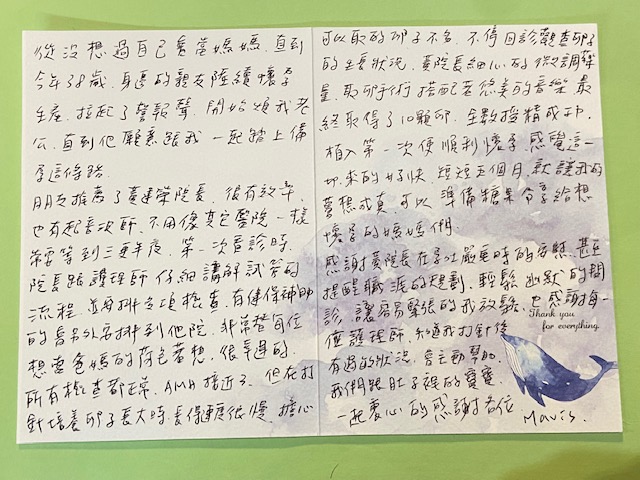 從沒想過自己會當媽媽,直到
今年38歲,身邊的親友陸續懷孕
生產,拉起了警報聲,開始煩我老
公,直到他願意跟我一起踏上備
孕這條路.
朋友推薦了黃建榮院長,很有效率,
也有起長沙師.不用像其它醫院一樣
需等到三更半夜.第一次看診時,
院長跟護理師仔細講解試管的
流程,並安排各項檢查,有健保補助
的會另外安排到他院,非常替每位
想當爸媽的荷包著想.很幸運的
所有檢查都正常,AMH接近3,但在打
針培養卵子長大時,長得速度很慢,擔心
可以取的卵子不多,不停回診觀查卵子
的生長狀況.黃院長細心的微調藥
量,取卵手術搭配著悠美的音樂,最
終取得了10顆卵,全數授精成功.
植入第一次便順利懷孕,感覺這一
切來的好快,短短五個月,就讓我的
夢想成真,可以準備糖果分享給想
懷孕的媽媽們.
感謝黃院長在孕吐嚴重時的安慰,甚至
提醒職涯的規劃,輕鬆幽默的問
診,讓容易緊張的我放鬆,也感謝每一
位護理師,知道我打針後
有過的狀況,會主動幫忙.
我們跟肚子裡的寶寶
一起衷心的感謝各位
Mavis.
Thank you
for everything.